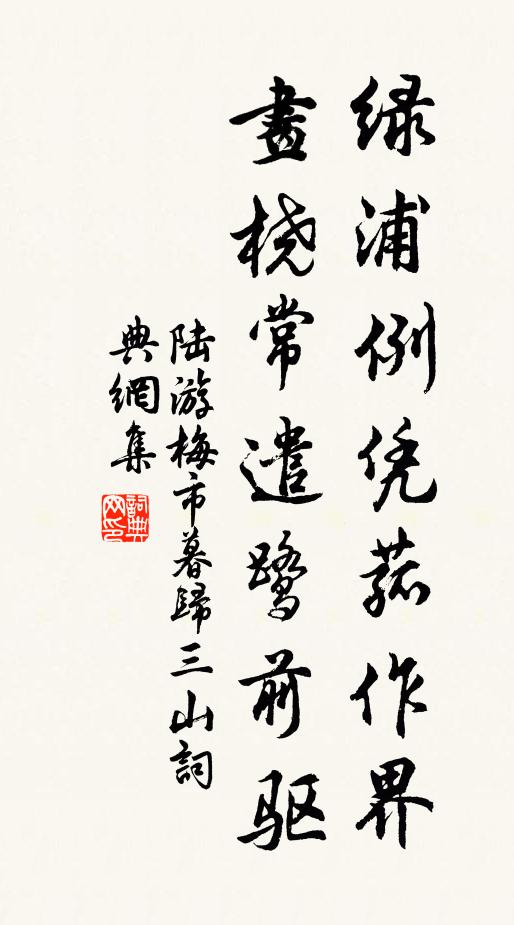 绿浦例凭菰作界
畫桡常遣鹭前驱
陆游梅市暮歸三山詞
典網集
詞典网印